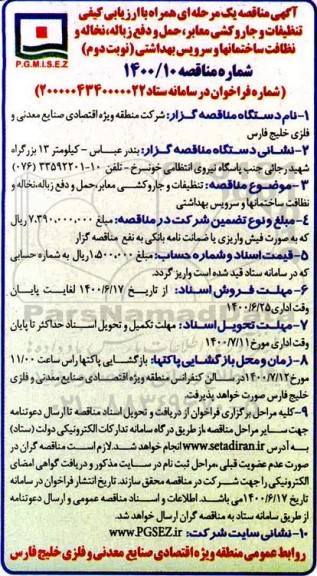 آگهی مناقصه یک مرحله ای همراه با ارزیابی کیفی
تنظیفات و جاروکشی معابر، حمل و دفع زباله، نخاله و
نظافت ساختمانها و سرویس بهداشتی (نوبت دوم)
P.G.M.I.S.E.Z
شماره مناقصه ۱۴۰۰/۱۰
(شماره فراخوان در سامانه ستاد ۲۰۰۰۰۰۴۳۴۰۰۰۰۰۲۲)
۱-نام دستگاه مناقصه گزار: شرکت منطقه ویژه اقتصادی صنایع معدنی و
فلزی خلیج فارس
۲-نشانی دستگاه مناقصه گزار: بندر عباس - کیلومتر ۱۳ بزرگراه
شهید رجائی جنب پاسگاه نیروی انتظامی خونسرخ - تلفن ۱۰-۳۳۵۹۲۲۰۱ (۰۷۶)
۳-موضوع مناقصه: تنظیفات و جاروکشی معابر، حمل و دفع زباله، نخاله و
نظافت ساختمانها و سرویس بهداشتی
۴-مبلغ و نوع تضمین شرکت در مناقصه: مبلغ ۷.۳۹۰.۰۰۰.۰۰۰ ریال
که به صورت فیش واریزی یا ضمانت نامه بانکی به نفع مناقصه گزار
۵-قیمت اسناد و شماره حساب: مبلغ ۱.۵۰۰.۰۰۰ ریال به شماره حسابی
که در سامانه ستاد قید شده است واریز گردد.
۶-مهلت فروش اسناد: از تاریخ ۱۴۰۰/۶/۱۷ لغایت پایان
وقت اداری ۱۴۰۰/۶/۲۵
۷-مهلت تحویل اسناد: مهلت تکمیل و تحویل اسناد حداکثر تا پایان
وقت اداری مورخ ۱۴۰۰/۷/۱۱
۸-زمان و محل بازگشایی پاکتها: بازگشایی پاکتها راس ساعت ۱۱/۰۰
مورخ ۱۴۰۰/۷/۱۲ در سالن کنفرانس منطقه ویژه اقتصادی صنایع معدنی و فلزی
خلیج فارس صورت خواهد پذیرفت.
۹-کلیه مراحل برگزاری فراخوان از دریافت و تحویل اسناد مناقصه تا ارسال دعوتنامه
جهت سایر مراحل مناقصه ،از طریق درگاه سامانه تدارکات الکترونیکی دولت (ستاد)
به آدرس www.setadiran.ir انجام خواهد شد. لازم است مناقصه گران در
صورت عدم عضویت قبلی ،مراحل ثبت نام در سایت مذکور و دریافت گواهی امضای
الکترونیکی را جهت شرکت در مناقصه محقق سازند. تاریخ انتشار فراخوان در سامانه
تاریخ ۱۴۰۰/۶/۱۷ می باشد. اطلاعات و اسناد مناقصه عمومی و ارسال دعوتنامه
از طریق سامانه ستاد به مناقصه گران ارسال خواهد شد.
۱۰-نشانی سایت شرکت: www.PGSEZ.ir
روابط عمومی منطقه ویژه اقتصادی صنایع معدنی و فلزی خلیج فارس